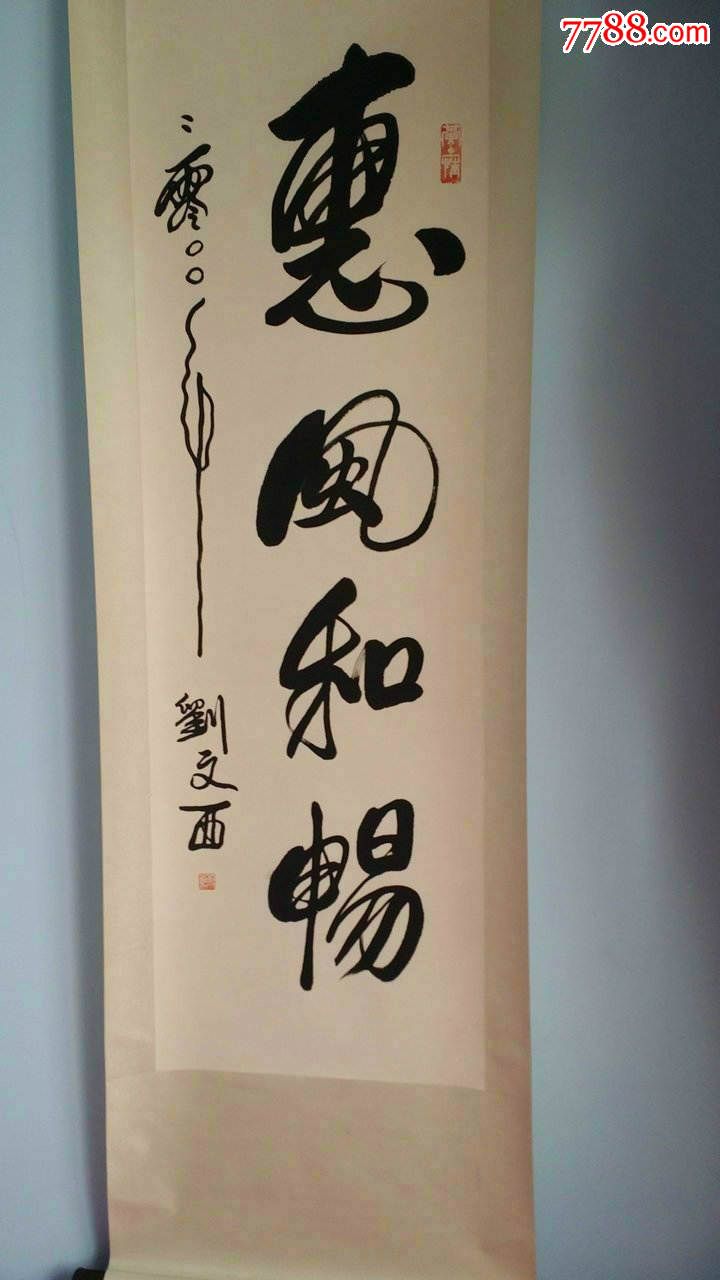 7788.com
惠風和暢
二零〇〇年
劉文西